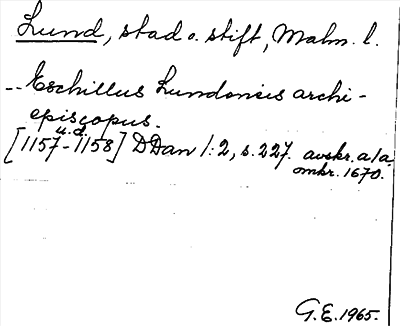 Lund, stad o. stift, Malm. l.
-- Eschillus Lundonsis archi-
episcopus.
u.d.
[1157-1158] DDan 1:2, s. 227. avskr. a/a
omkr. 1670.
G.E. 1965.